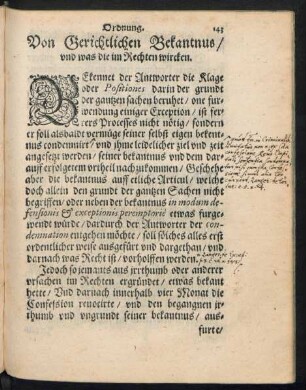 Ordnung. 143
Von Gerichtlichen Bekantnus/
vnd was die im Rechten wircken.
BEkennet der Antworter die Klage
oder Positiones darin der grundt
der gantzen sachen beruhet/ one fur-
wendung einiger Exception/ ist fer-
rers Processes nicht nötig/ sondern
er soll alsbaldt vermüge seiner selbst eigen bekent-
nus condemnirt/ vnd ihme leidelicher ziel vnd zeit
angesetzt werden/ seiner bekantnus vnd dem dar-
auff erfolgetem vrtheil nachzukommen/ Geschehe
aber die bekantnus auff etliche Articul/ welche
doch allein den grundt der gantzen Sachen nicht
begriffen/ oder neben der bekantnus in modum de-
fensionis & exceptionis peremptoriæ etwas furge-
wendt würde/ dardurch der Antworter der con-
demnation entgehen möchte/ soll solches alles erst
ordentlicher weise ausgefürt vnd dargethan/ vnd
darnach was Recht ist/ vorholffen werden.
Jedoch so jemants aus irrthumb oder anderer
vrsachen im Rechten ergründet/ etwas bekant
hette/ Vnd darnach innerhalb vier Monat die
Confession reuocirte/ vnd den begangnen irr-
thumb vnd vngrundt seiner bekantnus/ aus-
furte/